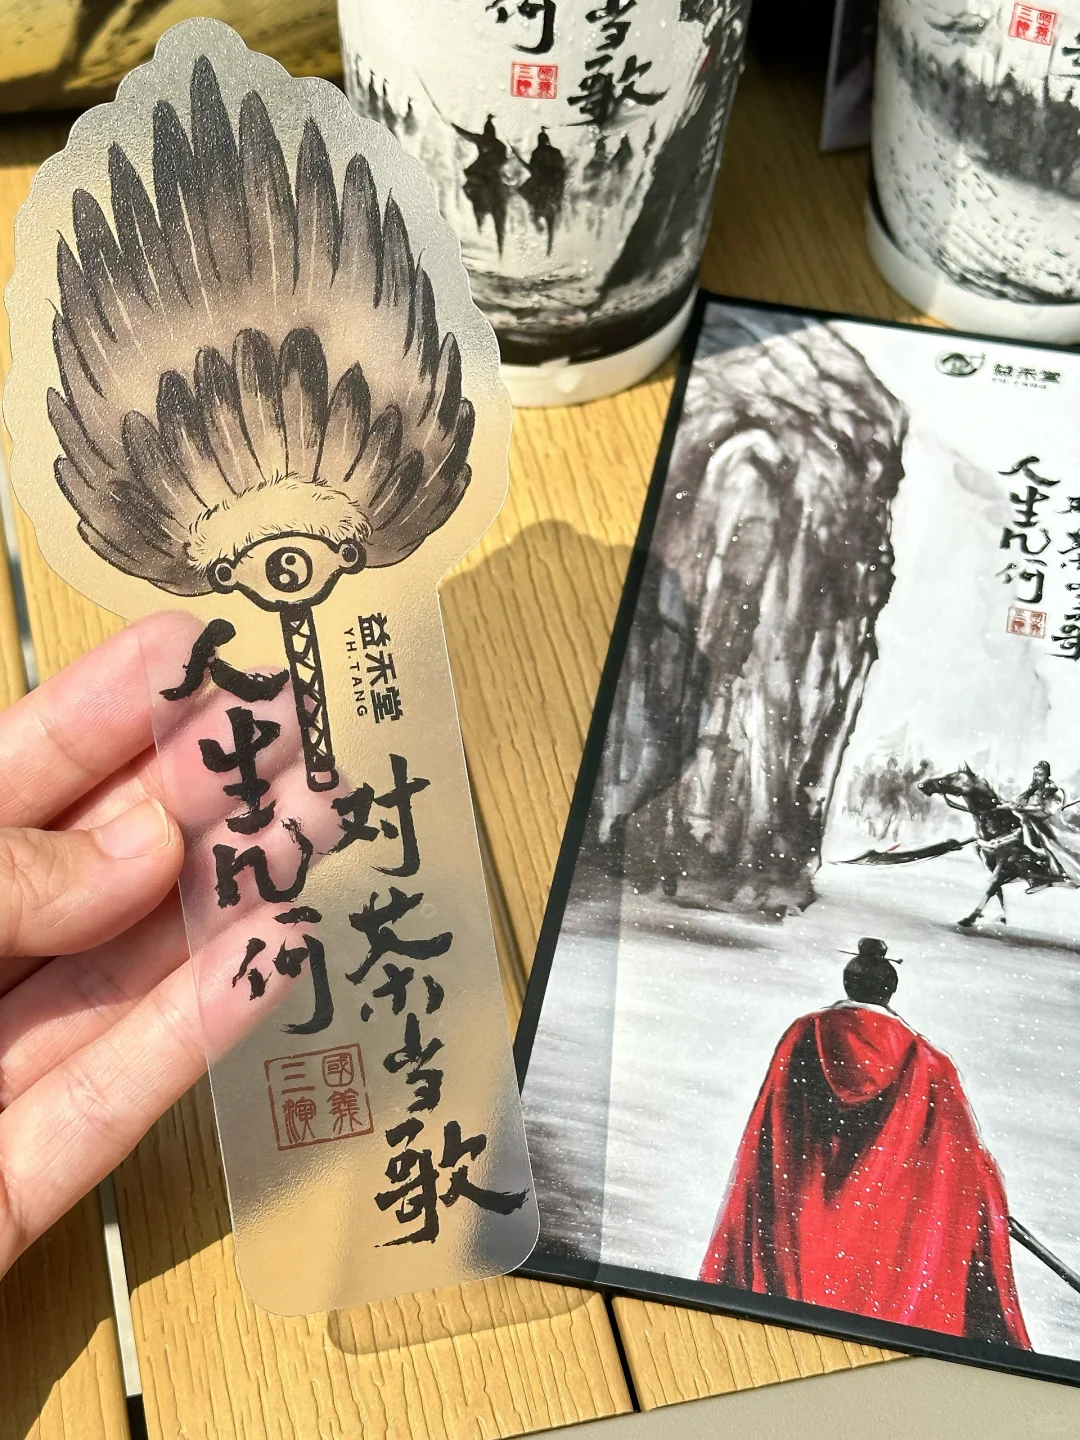 益禾堂
YH.TANG
人生几何
对茶当歌
三國
演義
何
当歌
三國
演義
三國
益禾堂
人生几何
对茶当歌
三國
演義